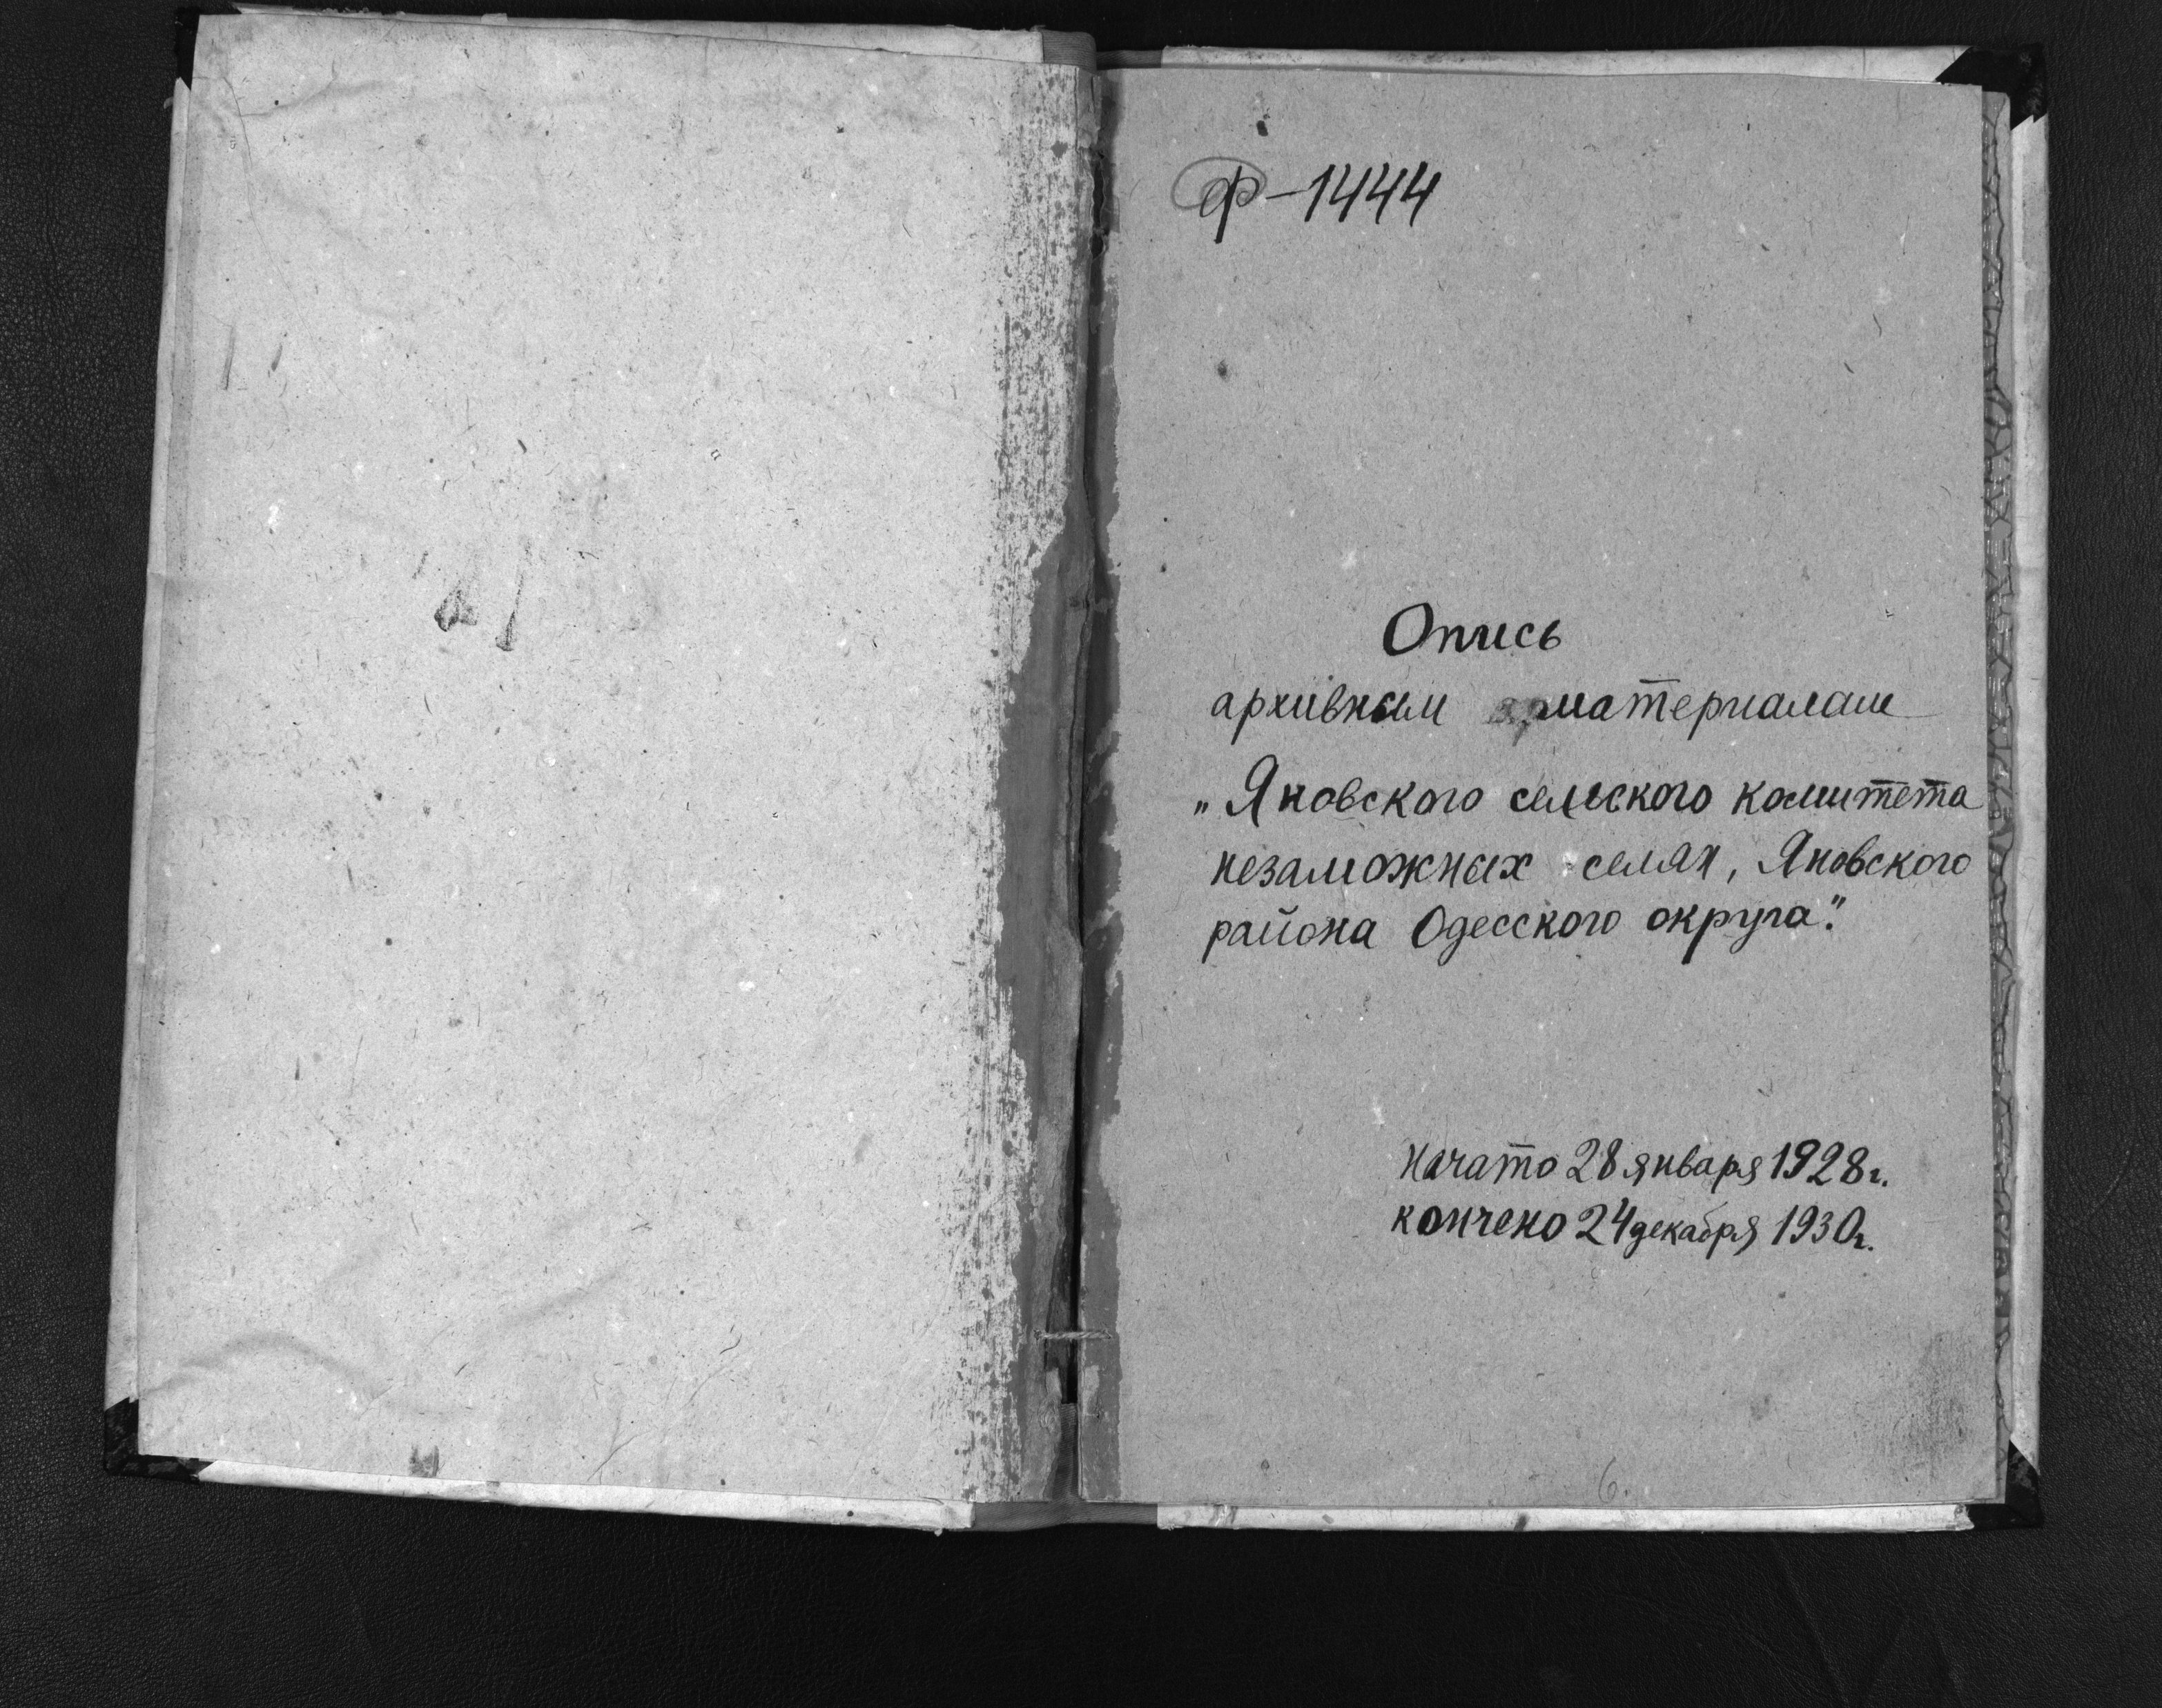 Ф-1444
Опись
архивным материалам
„Яновского сельского комитета
незаможных селян, Яновского
района Одесского округа."
Начато 28 января 1928 г.
кончено 24 декабря 1930 г.
6.